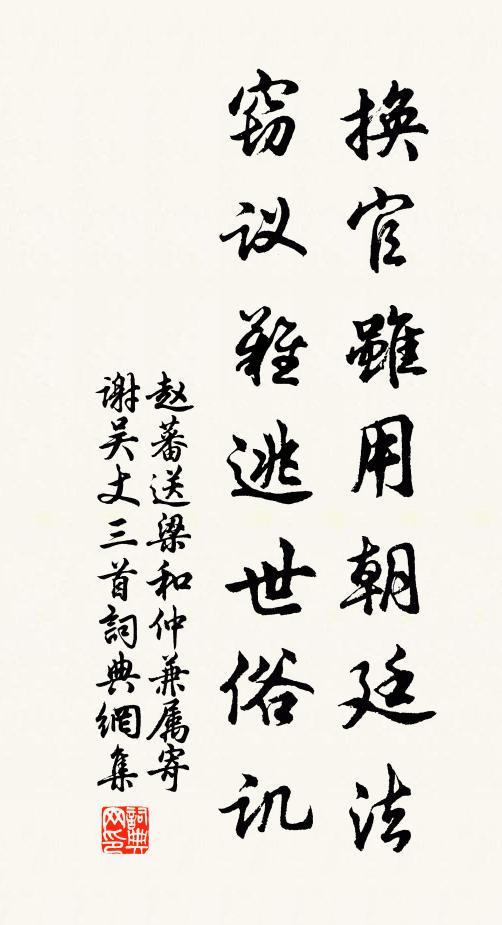 换官雖用朝廷法
窃议難逃世俗讥
赵蕃送梁和仲兼属寄
谢吴丈三首詞典網集
詞典
网印